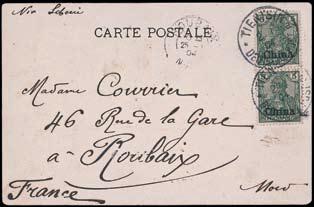 Via Siberie
CARTE POSTALE
TIENTSIN
China
5
China
Madame Courrier
46 Rue de la Gare
à Roubaix
France